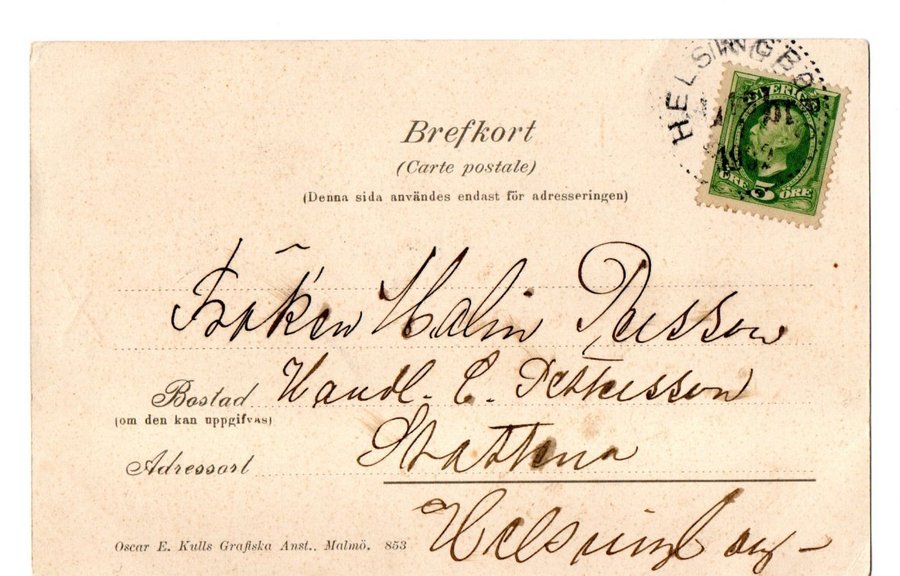 HELSINGBORG
SVERIGE
5 ÖRE
Brefkort
(Carte postale)
(Denna sida användes endast för adresseringen)
Fröken Malin Persson
Bostad Handl. C. Pettersson
(om den kan uppgifvas)
Stattena
Adressort
Helsingborg
Oscar E. Kulls Grafiska Anst., Malmö. 853